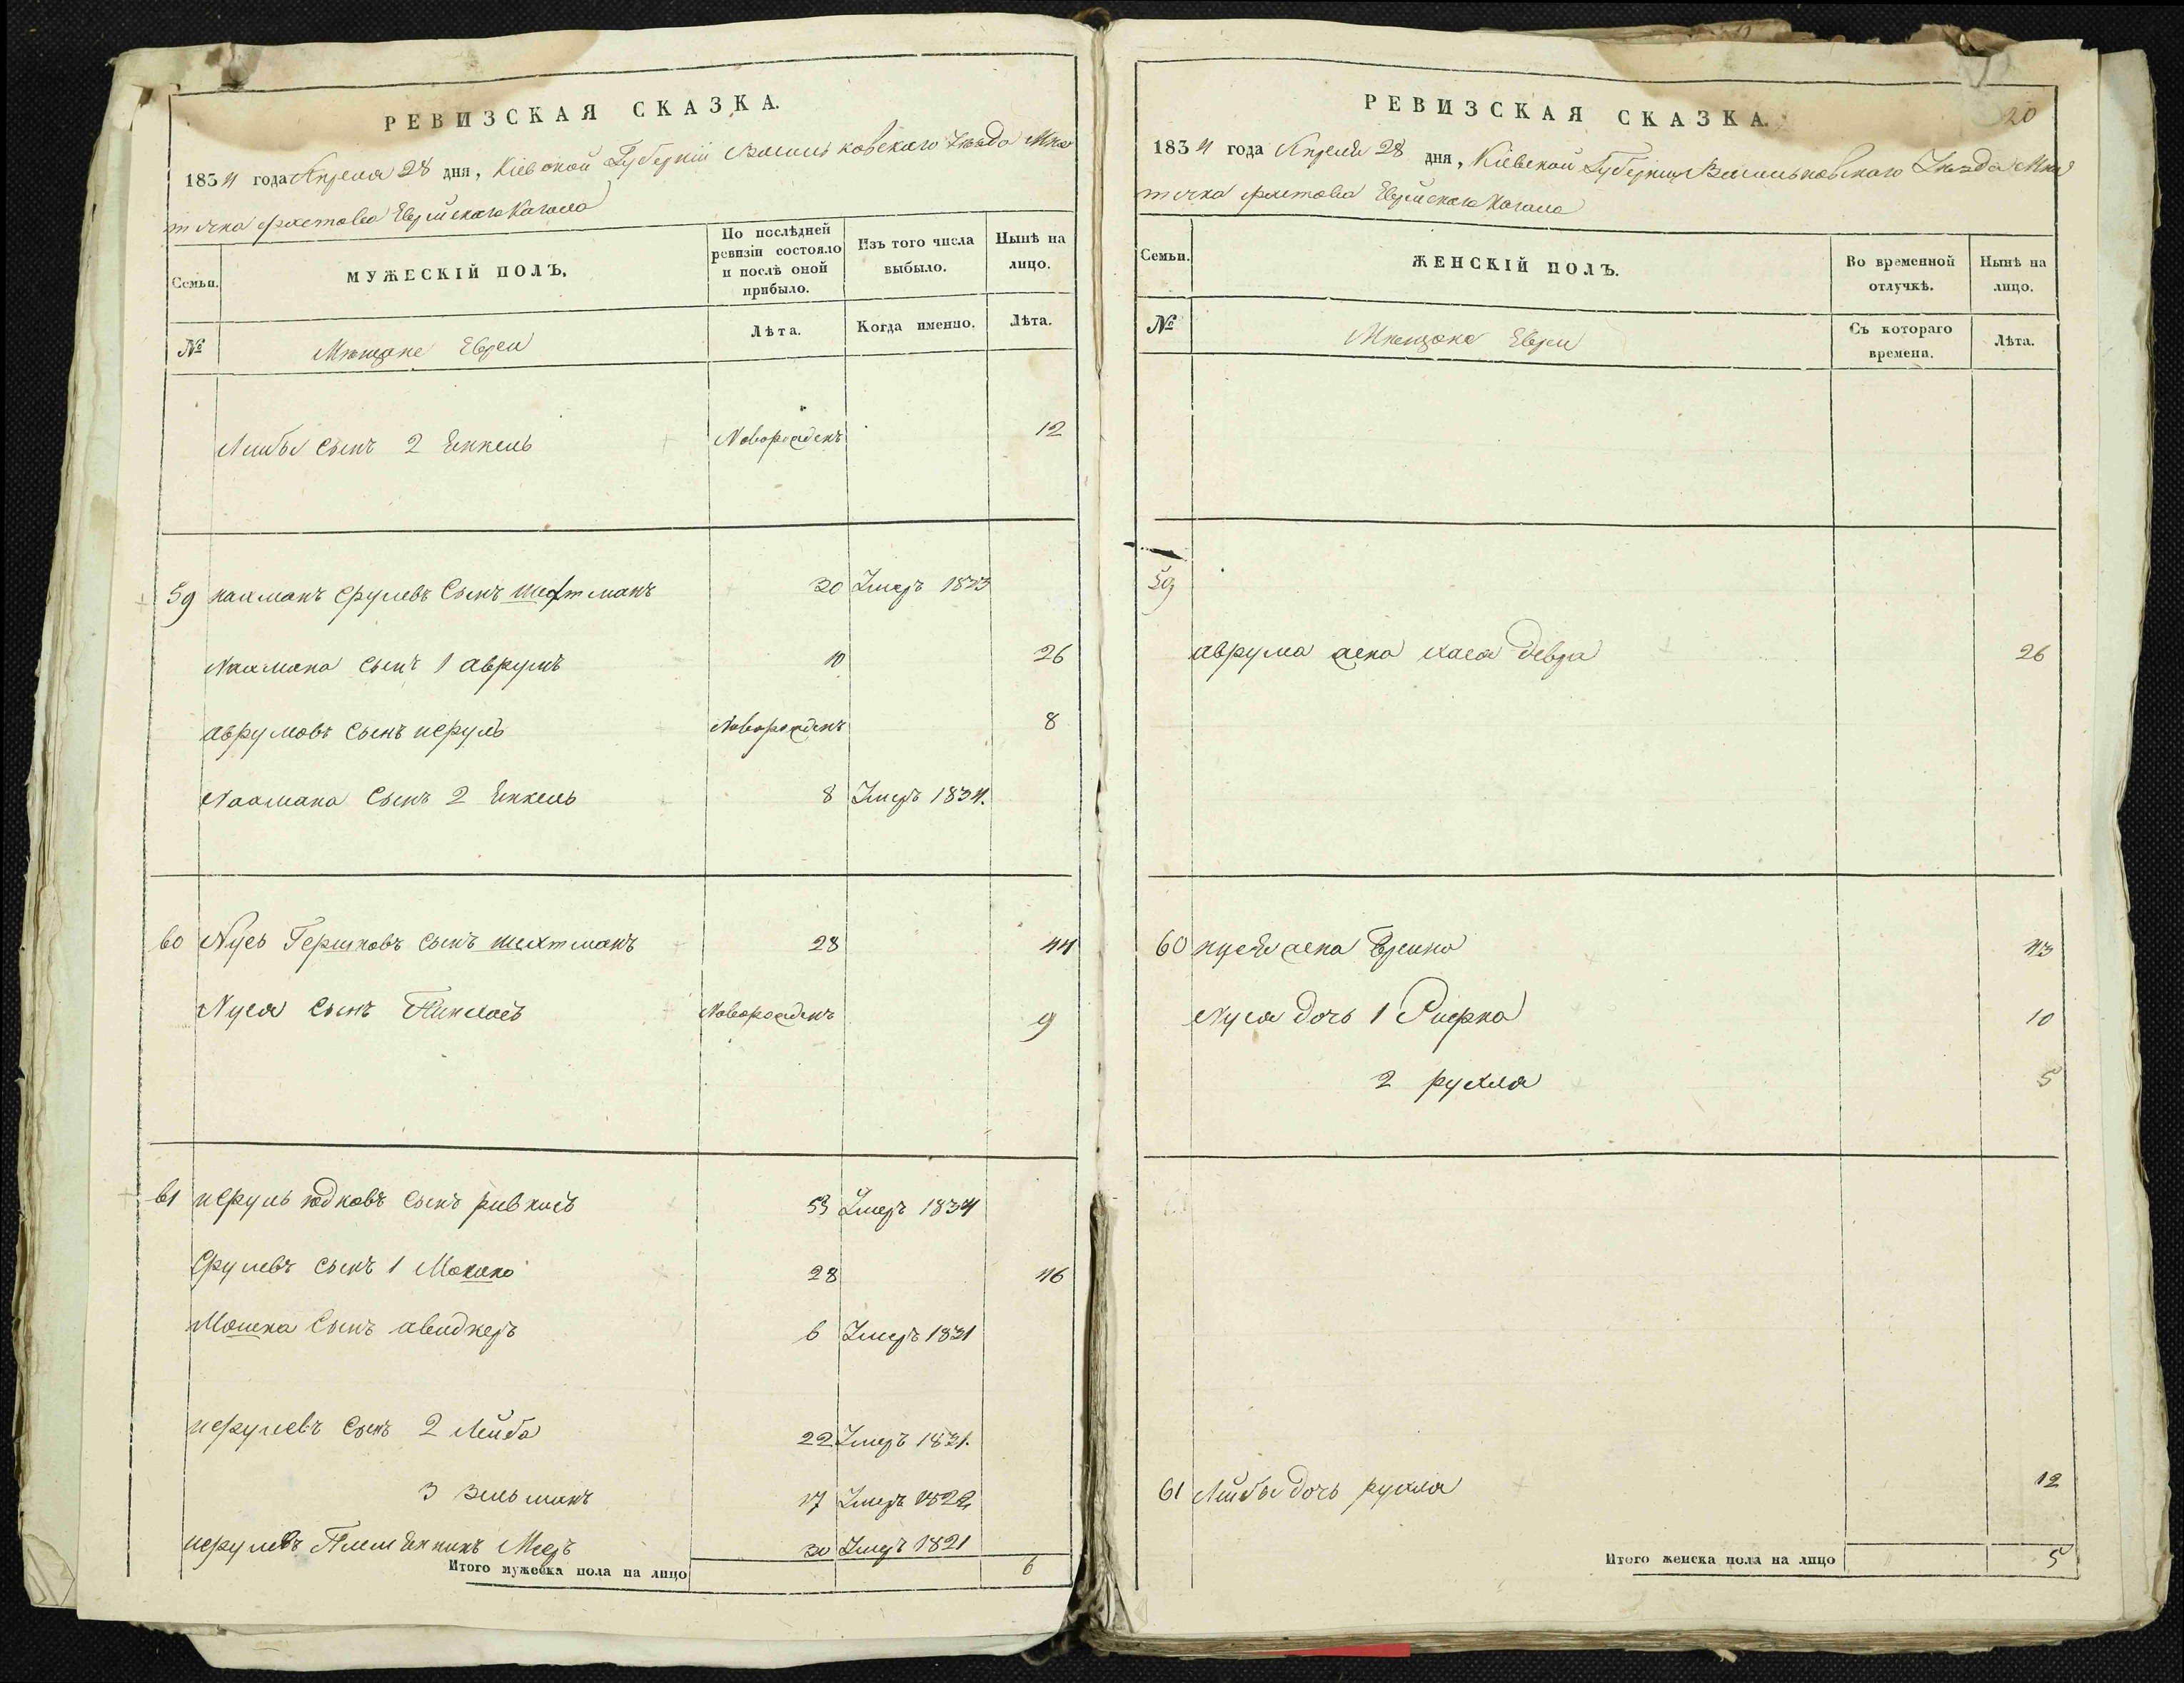 РЕВИЗСКАЯ СКАЗКА.
1834 года Апреля 28 дня, Кіевской Губерніи Васильковскаго Уѣзда Мѣс
течка Фастова Еврейскаго Кагала
Семьи.
МУЖЕСКІЙ ПОЛЪ.
По послѣдней ревизіи состояло и послѣ оной прибыло.
Изъ того числа выбыло.
Нынѣ на лицо.
№
Мѣщане Евреи
Лѣта.
Когда именно.
Лѣта.
Лейбы сынъ 2 Янкель Новорожденъ 12
59 нахманъ Срулевъ Сынъ шехтманъ 20 Умеръ 1823
Нахмана сынъ 1 аврумъ 10 26
аврумовъ сынъ исруль Новорожденъ 8
Нахмана Сынъ 2 Янкель 8 Умеръ 1834.
60 Нусь Гершковъ сынъ шехтманъ 28 44
Нуся сынъ Пинхасъ Новорожденъ 9
61 исруль юдковъ сынъ ривкисъ 53 Умеръ 1834
Срулевъ сынъ 1 Мошко 28 46
Мошка Сынъ авидкеръ 6 Умеръ 1831
исрулевъ сынъ 2 Лейба 22 Умеръ 1831.
3 зильманъ 17 Умеръ 1822
исрулевъ Племянникъ Меръ 30 Умеръ 1821
Итого мужеска пола на лицо 6
РЕВИЗСКАЯ СКАЗКА.
20
1834 года Апреля 28 дня, Кіевской Губерніи Васильковскаго Уѣзда Мѣс
течка Фастова Еврейскаго Кагала
Семьи.
ЖЕНСКІЙ ПОЛЪ.
Во временной отлучкѣ.
Нынѣ на лицо.
№
Мѣщане Евреи
Съ котораго времени.
Лѣта.
59
аврума жена хася девра 26
60 нуся жена Фрейно 43
Нуся дочь 1 Рифка 10
2 рухля 5
61 Лейбы дочь рухля 12
Итого женска пола на лицо 5